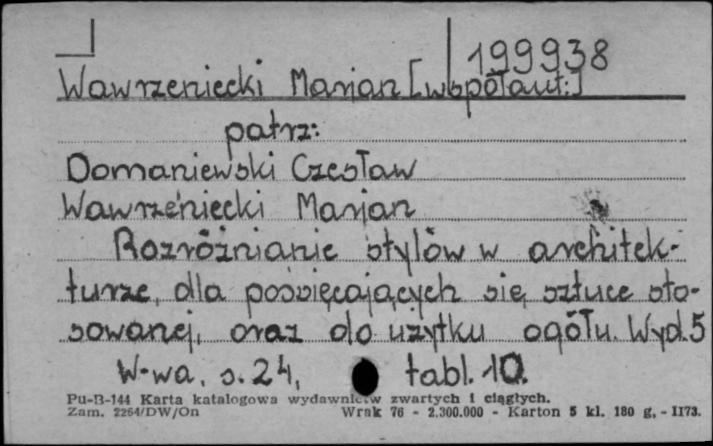 199938
Wawrzeniecki Marjan [współaut.]
patrz:
Domaniewski Czesław
Wawrzeniecki Marjan
Rozróżnianie stylów w architek-
turze, dla poświęcających się sztuce sto-
sowanej, oraz do użytku ogółu. Wyd. 5
W-wa, s. 24, tabl. 10.
Pu-B-144 Karta katalogowa wydawnictw zwartych i ciągłych.
Zam. 2264/DW/On Wrak 76 - 2.300.000 - Karton 5 kl. 180 g, - II73.